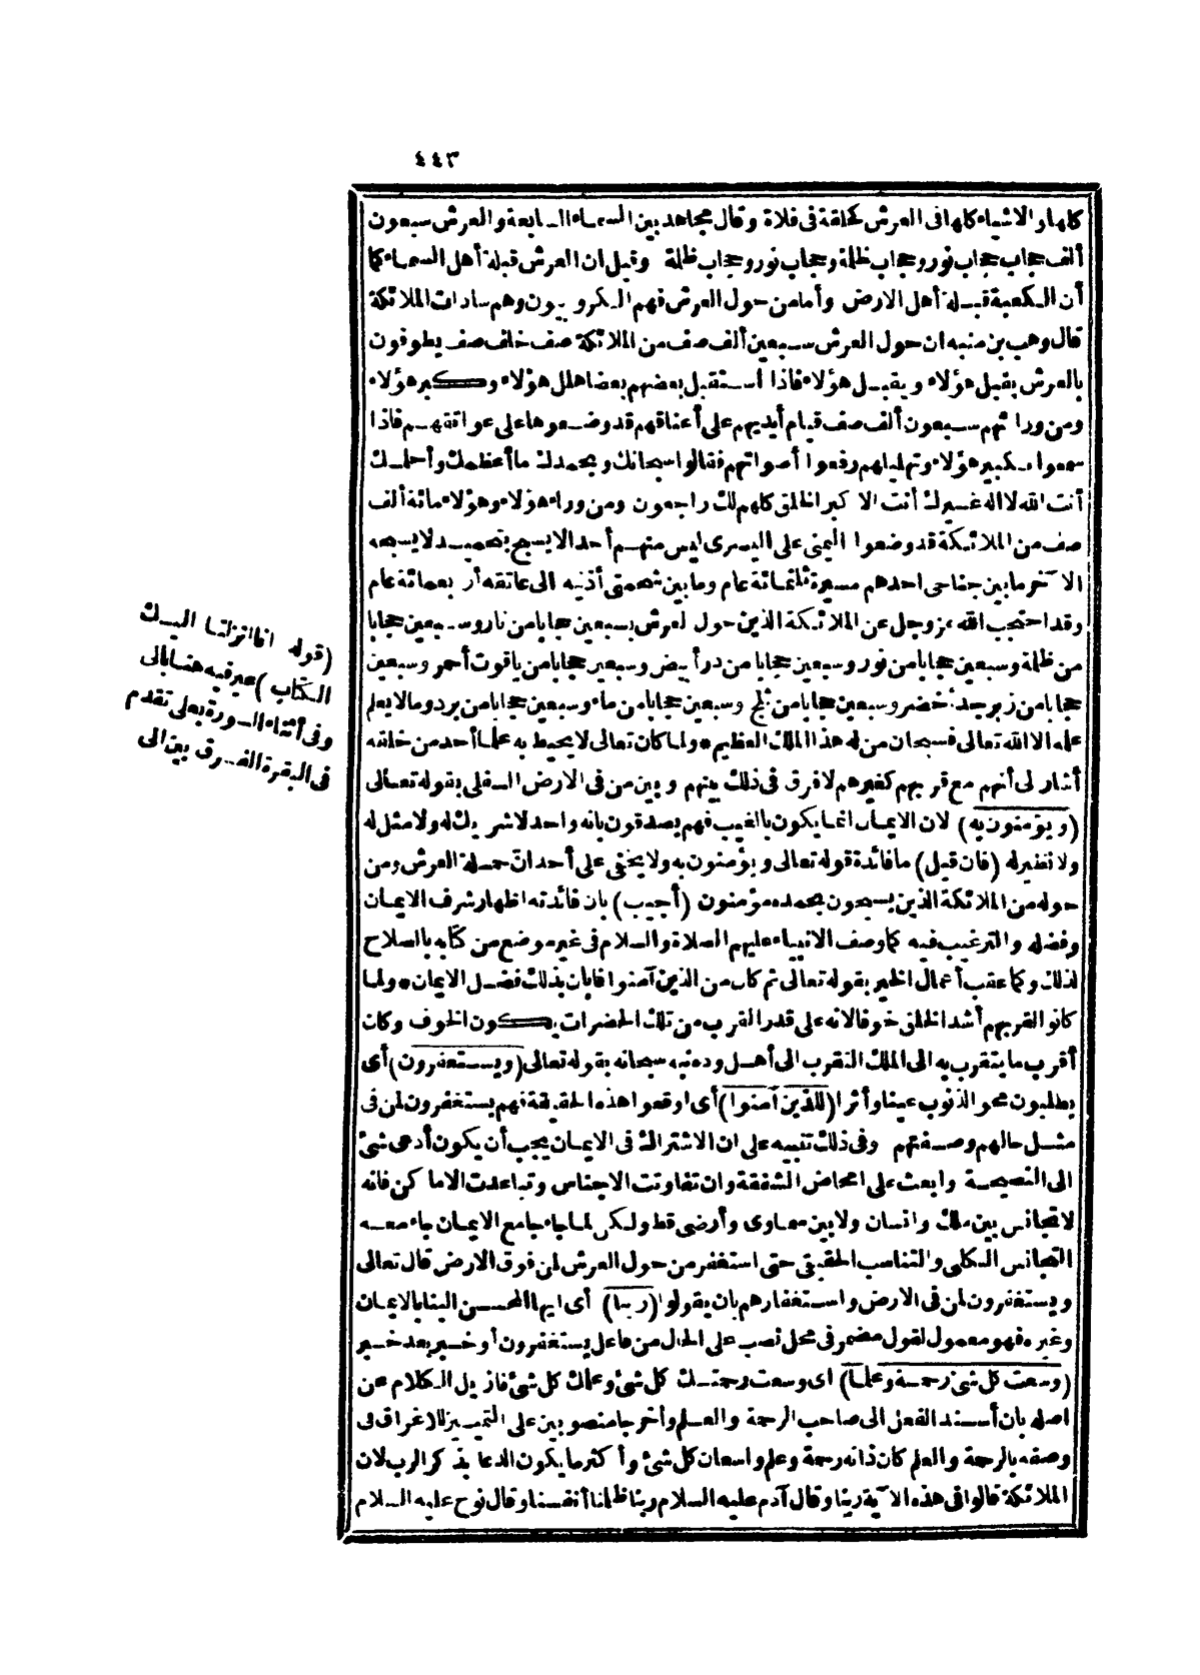 ٤٤٣
كلها والاشياء كلها فى العرش كحلقة فى فلاة وقال مجاهد بين السماء السابعة والعرش سبعون
ألف حجاب حجاب نور وحجاب ظلمة وحجاب نور وحجاب ظلمة وقيل ان العرش قبلة أهل السماء كما
أن الكعبة قبلة أهل الارض وأما من حول العرش فهم الكروبيون وهم سادات الملائكة
قال وهب بن منبه ان حول العرش سبعين ألف صف من الملائكة صف خلف صف يطوفون
بالعرش يقبل هؤلاء ويقبل هؤلاء فاذا استقبل بعضهم بعضا هلل هؤلاء وكبر هؤلاء
ومن ورائهم سبعون ألف صف قيام أيديهم على أعناقهم قد وضعوها على عواتقهم فاذا
سمعوا تكبير هؤلاء وتهليلهم رفعوا أصواتهم فقالوا سبحانك وبحمدك ما أعظمك وأحلمك
أنت الله لا اله غيرك أنت الاكبر الخلق كلهم لك راجعون ومن وراء هؤلاء وهؤلاء مائة ألف
صف من الملائكة قد وضعوا اليمنى على اليسرى ليس منهم أحد الا يسبح بتحميد لا يسبحه
الآخر ما بين جناحى احدهم مسيرة ثلثمائة عام وما بين شحمتى أذنيه الى عاتقه أربعمائة عام
وقد احتجب الله عز وجل عن الملائكة الذين حول العرش بسبعين حجابا من نار وسبعين حجابا
من ظلمة وسبعين حجابا من نور وسبعين حجابا من در أبيض وسبعين حجابا من ياقوت أحمر وسبعين
حجابا من زبرجد أخضر وسبعين حجابا من ثلج وسبعين حجابا من ماء وسبعين حجابا من برد وما لا يعلم
علمه الا الله تعالى فسبحان من له هذا الملك العظيم * ولما كان تعالى لا يحيط به علما أحد من خلقه
أشار لى أنهم مع قربهم كغيرهم لا فرق فى ذلك بينهم وبين من فى الارض السفلى بقوله تعالى
(ويؤمنون به) لان الايمان انما يكون بالغيب فهم يصدقون بانه واحد لا شريك له ولا مثل له
ولا نظير له (فان قيل) ما فائدة قوله تعالى ويؤمنون به ولا يخفى على أحد ان حملة العرش ومن
حوله من الملائكة الذين يسبحون بحمده مؤمنون (أجيب) بان فائدته اظهار شرف الايمان
وفضله والترغيب فيه كما وصف الانبياء عليهم الصلاة والسلام فى غير موضع من كتابه بالصلاح
لذلك وكما عقب أعمال الخير بقوله تعالى ثم كان من الذين آمنوا فابان بذلك فضل الايمان * ولما
كانوا لقربهم أشد الخلق خوفا لانه على قدر القرب من تلك الحضرات يكون الخوف وكان
أقرب ما يتقرب به الى الملك التقرب الى أهل وده نبه سبحانه بقوله تعالى (ويستغفرون) أى
يطلبون محو الذنوب عينا وأثرا (للذين آمنوا) أى اوقعوا هذه الحقيقة فهم يستغفرون لمن فى
مثل حالهم وصفتهم وفى ذلك تنبيه على ان الاشتراك فى الايمان يجب أن يكون أدعى شئ
الى النصيحة وابعث على امحاض الشفقة وان تفاوتت الاجناس وتباعدت الاماكن فانه
لا تجانس بين ملك وانسان ولا بين سماوى وأرضى قط ولكن لما جاء جامع الايمان جاء معه
التجانس الكلى والتناسب الحقيقى حتى استغفر من حول العرش لمن فوق الارض قال تعالى
ويستغفرون لمن فى الارض واستغفارهم بان يقولوا (ربنا) أى ايها المحسن الينا بالايمان
وغيره فهو معمول لقول مضمر فى محل نصب على الحال من فاعل يستغفرون أو خبر بعد خبر
(وسعت كل شئ رحمة وعلما) اى وسعت رحمتك كل شئ وعلمك كل شئ فازيل الكلام عن
اصله بان أسند الفعل الى صاحب الرحمة والعلم وأخرجا منصوبين على التمييز للاغراق فى
وصفه بالرحمة والعلم كان ذاته رحمة وعلم واسعان كل شئ وأكثر ما يكون الدعاء بذكر الرب لان
الملائكة قالوا فى هذه الآية ربنا وقال آدم عليه السلام ربنا ظلمنا أنفسنا وقال نوح عليه السلام
(قوله انا انزلنا اليك
الكتاب) عبر فيه هنا بالى
وفى أثناء السورة بعلى تقدم
فى البقرة الفرق بين الى